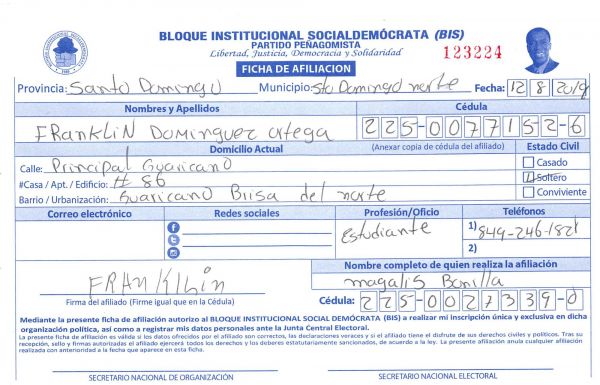 BLOQUE INSTITUCIONAL SOCIALDEMÓCRATA (BIS)
PARTIDO PEÑAGOMISTA
Libertad, Justicia, Democracia y Solidaridad
123224
FICHA DE AFILIACION
Provincia: Santo Domingo Municipio: Sto Domingo norte Fecha: 12 8 2019
Nombres y Apellidos Cédula
FRanklin Dominguez ortega 225-0077152-6
Domicilio Actual (Anexar copia de cédula del afiliado) Estado Civil
Calle: Principal Guaricano Casado
#Casa / Apt. / Edificio: # 86 Soltero
Barrio / Urbanización: Guaricano Brisa del norte Conviviente
Correo electrónico Redes sociales Profesión/Oficio Teléfonos
Estudiante 1) 849-246-1821
2)
Nombre completo de quien realiza la afiliación
FRANKlin magalis Bonilla
Firma del afiliado (Firme igual que en la Cédula) Cédula: 225-0027339-0
Mediante la presente ficha de afiliación autorizo al BLOQUE INSTITUCIONAL SOCIAL DEMÓCRATA (BIS) a realizar mi inscripción única y exclusiva en dicha
organización política, así como a registrar mis datos personales ante la Junta Central Electoral.
La presente ficha de afiliación es válida si los datos ofrecidos por el afiliado son correctos, las declaraciones veraces y si el afiliado tiene el disfrute de sus derechos civiles y políticos. Tras su
recepción, sello y firmas autorizadas el afiliado ejercerá todos los derechos y los deberes estatutariamente sancionados, de acuerdo a la ley. La presente afiliación anula cualquier afiliación
realizada con anterioridad a la fecha que aparece en esta ficha.
SECRETARIO NACIONAL DE ORGANIZACIÓN SECRETARIO NACIONAL ELECTORAL